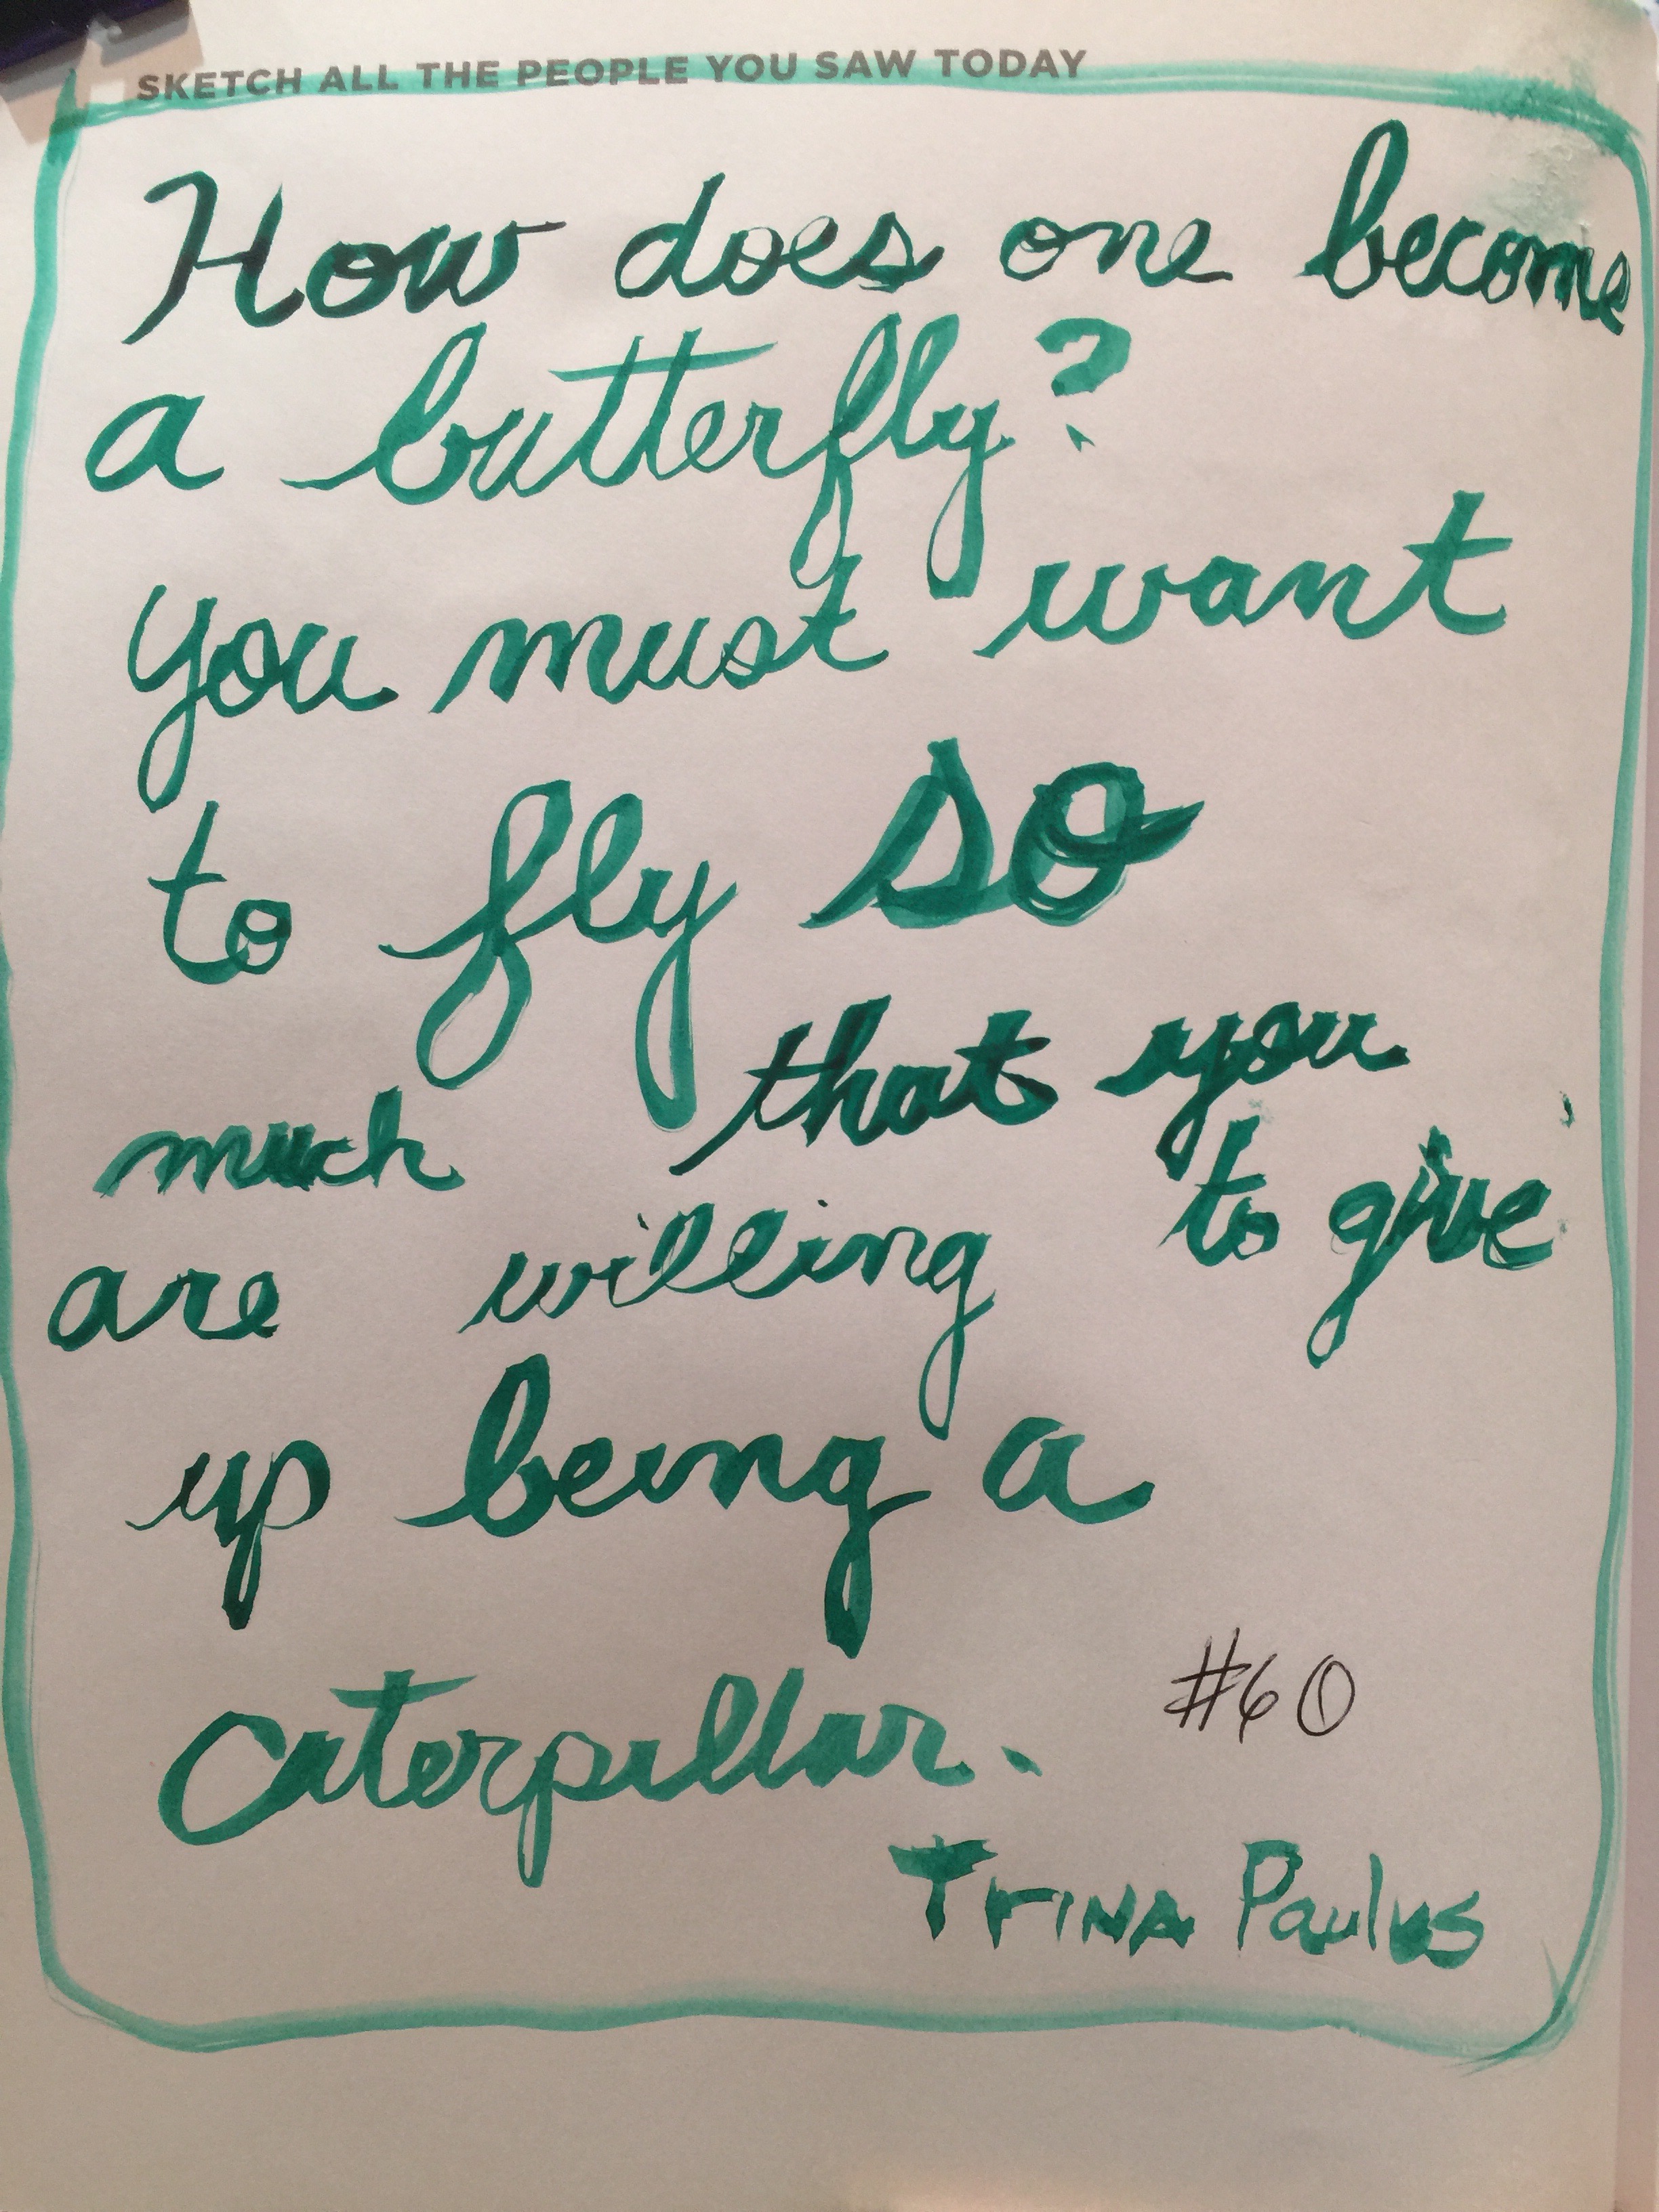 SKETCH ALL THE PEOPLE YOU SAW TODAY
How does one become
a butterfly?
you must want
to fly so
much that you
are willing to give
up being a
caterpillar.
#60
Trina Paulus